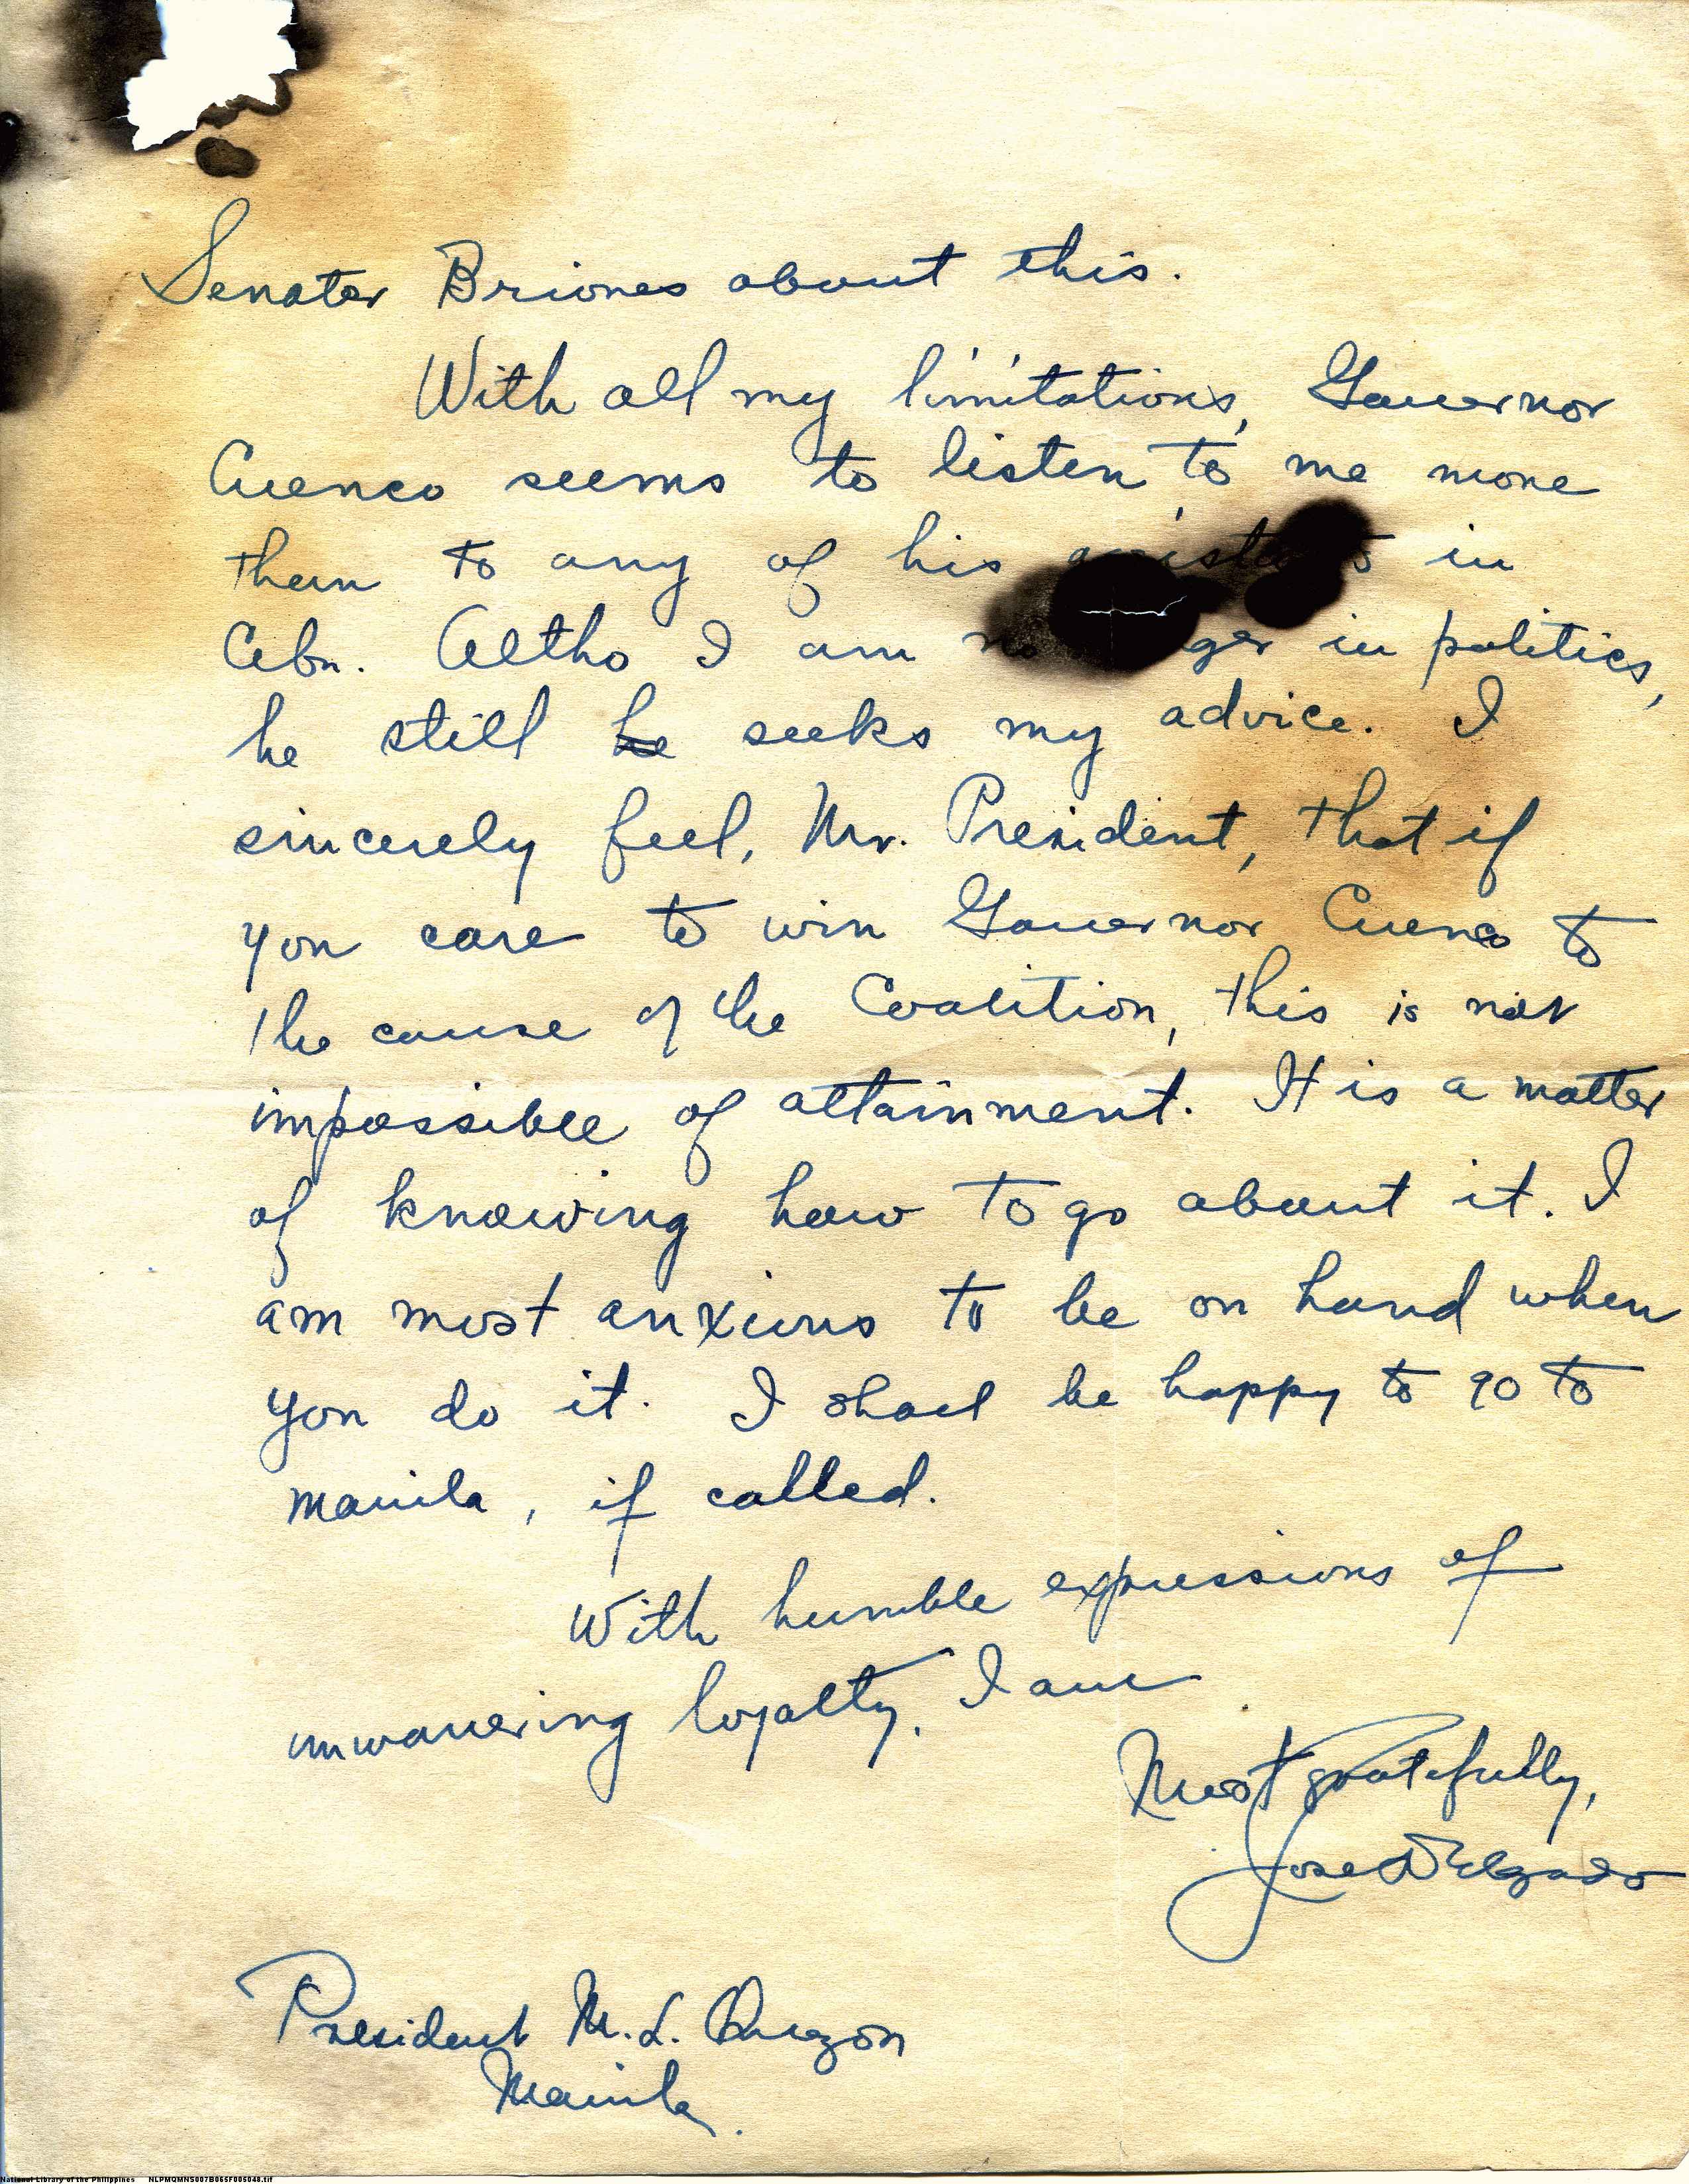 Senator Briones about this.
With all my limitations, Governor
Cuenco seems to listen to me more
than to any of his in
Cebu. Altho I am in politics,
he still he seeks my advice. I
sincerely feel, Mr. President, that if
you care to win Governor Cuenco to
the cause of the Coalition, this is not
impossible of attainment. It is a matter
of knowing how to go about it. I
am most anxious to be on hand when
you do it. I shall be happy to go to
Manila, if called.
With humble expressions of
unwavering loyalty, I am
Most gratefully,
Jose Delgado
President M. L. Quezon
Manila.
National Library of the Philippines NLPMQMNS007B065F005048.tif